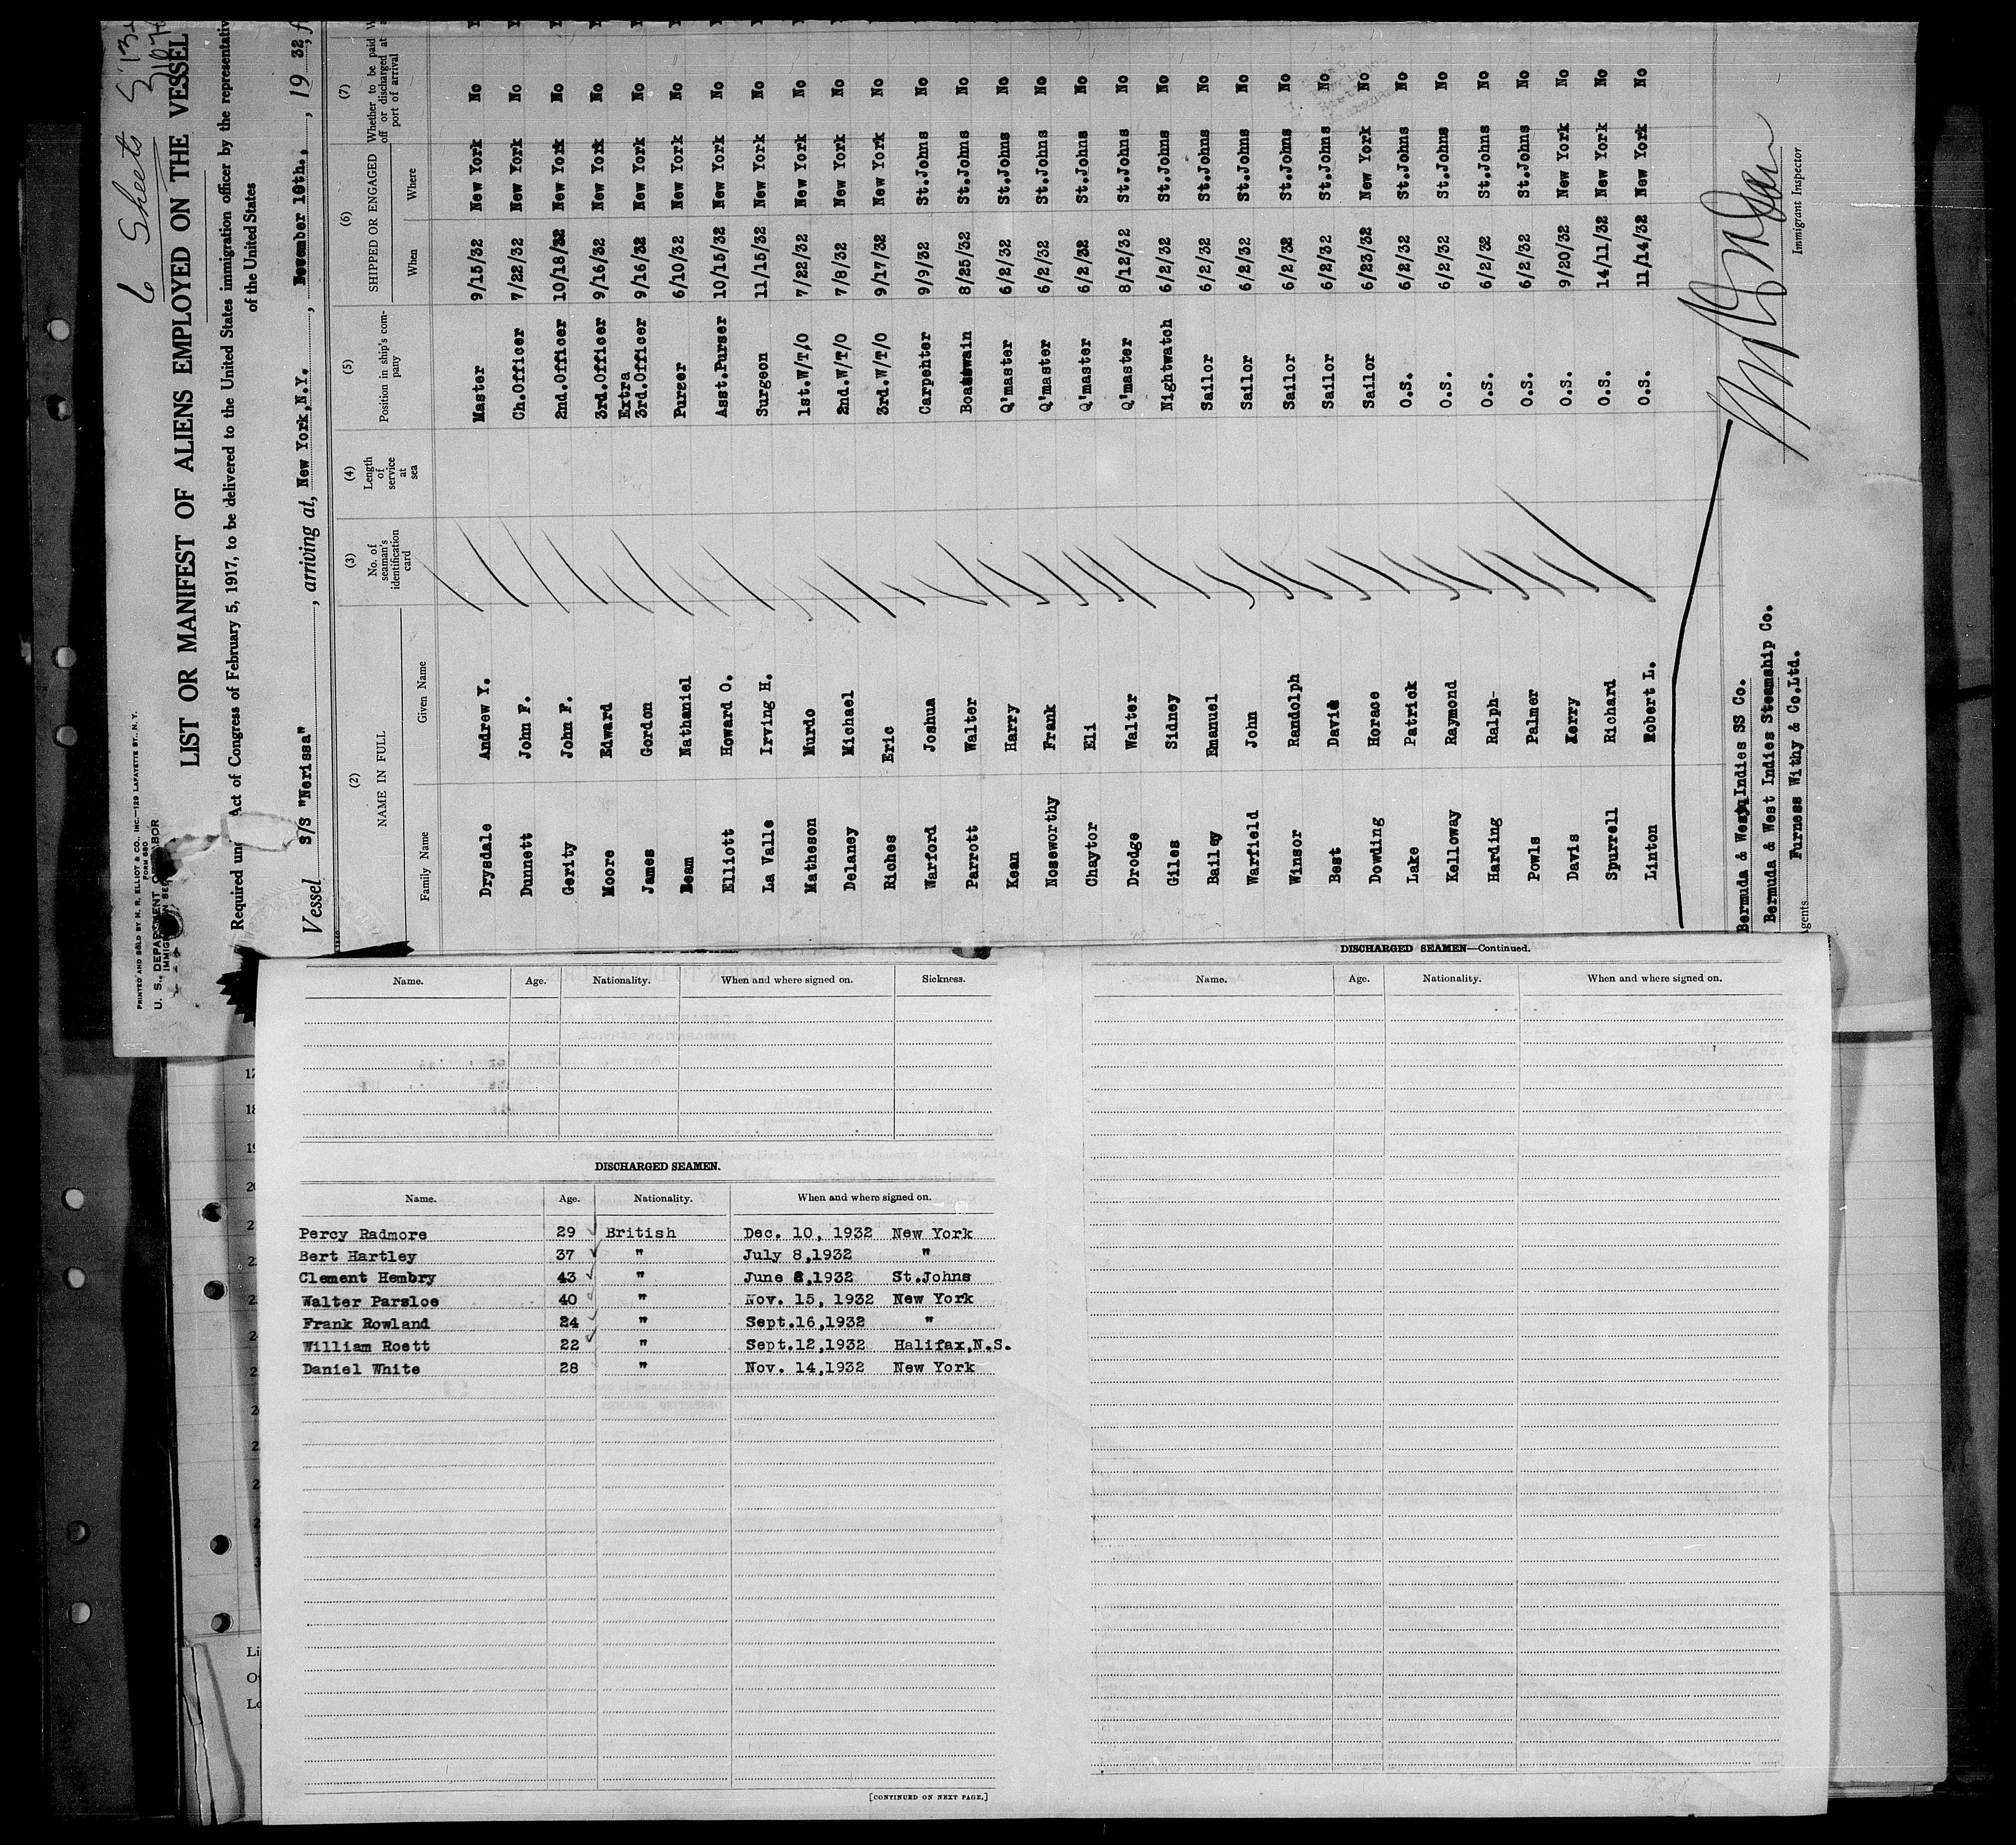 6 Sheets
PRINTED AND SOLD BY H. R. ELLIOT & CO., INC.—129 LAFAYETTE ST., N. Y.
FORM 680
U. S. DEPARTMENT OF LABOR
LIST OR MANIFEST OF ALIENS EMPLOYED ON THE VESSEL
Required Act of Congress of February 5, 1917, to be delivered to the United States immigration officer by the
of the United States
Vessel S/S "Nerissa", arriving at, New York,N.Y., 19 32,
(2) (3) (4) (5) (6) (7)
NAME IN FULL No. of seaman's identification card Length of service at sea Position in ship's company SHIPPED OR ENGAGED Whether to be paid off or discharged at port of arrival
Family Name Given Name When Where
Drysdale Andrew Y. Master 9/15/32 New York No
Dunnett John F. Ch.Officer 7/22/32 New York No
Gerity John F. 2nd.Officer 10/18/32 New York No
Moore Edward 3rd.Officer 9/16/32 New York No
James Gordon Extra 3rd.Officer 9/16/32 New York No
Beam Nathaniel Purser 6/10/32 New York No
Elliott Howard O. Asst.Purser 10/15/32 New York No
La Valle Irving H. Surgeon 11/15/32 New York No
Matheson Murdo 1st.W/T/O 7/22/32 New York No
Delaney Michael 2nd.W/T/O 7/8/32 New York No
Riches Eric 3rd.W/T/O 9/17/32 New York No
Warford Joshua Carpenter 9/9/32 St.Johns No
Parrott Walter 8/25/32 St.Johns No
Kean Harry Q'master 6/2/32 St.Johns No
Noseworthy Frank Q'master 6/2/32 St.Johns No
Chaytor Eli Q'master 6/2/32 St.Johns No
Drodge Walter Q'master 8/12/32 St.Johns No
Giles Sidney Nightwatch 6/2/32 St.Johns No
Bailey Emanuel Sailor 6/2/32 St.Johns No
Warfield John Sailor 6/2/32 St.Johns No
Winsor Randolph Sailor 6/2/32 St.Johns No
Best David Sailor 6/2/32 St.Johns No
Dowding Horace Sailor 6/23/32 New York No
Lake Patrick O.S. 6/2/32 St.Johns No
Kelloway Raymond O.S. 6/2/32 St.Johns No
Harding Ralph- O.S. 6/2/32 St.Johns No
Powls Palmer O.S. 6/2/32 St.Johns No
Davis Kerry O.S. 9/20/32 New York No
Spurrell Richard O.S. 14/11/32 New York No
Linton Robert L. O.S. 11/14/32 New York No
Bermuda & West Indies SS Co.
Bermuda & West Indies Steamship Co.
Agents Furness Withy & Co.Ltd.
Immigrant Inspector
Name. Age. Nationality. When and where signed on. Sickness.
DISCHARGED SEAMEN.
Name. Age. Nationality. When and where signed on.
Percy Radmore 29 British Dec. 10, 1932 New York
Bert Hartley 37 " July 8,1932 "
Clement Hembry 43 " June 2,1932 St.Johns
Walter Parsloe 40 " Nov. 15, 1932 New York
Frank Rowland 24 " Sept.16,1932 "
William Roett 22 " Sept.12,1932 Halifax,N.S.
Daniel White 28 " Nov. 14,1932 New York
[CONTINUED ON NEXT PAGE.]
DISCHARGED SEAMEN—Continued.
Name. Age. Nationality. When and where signed on.